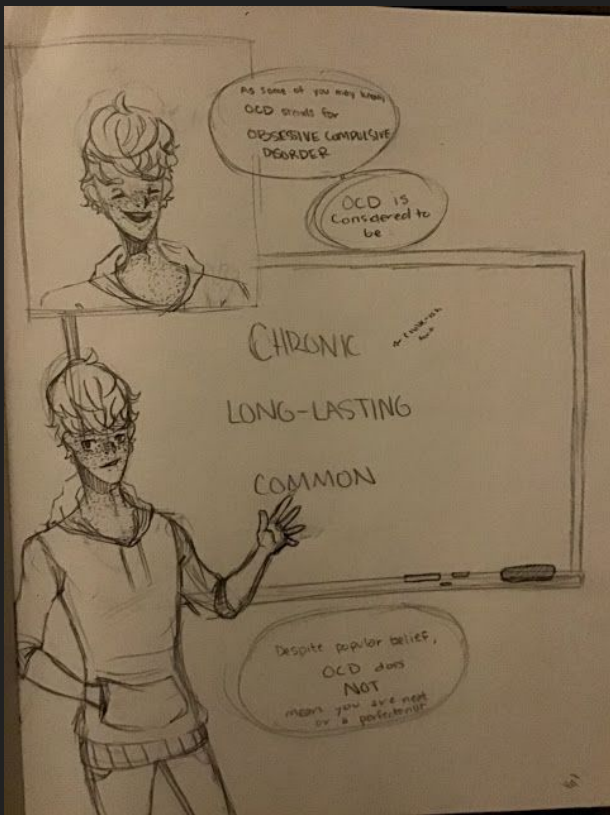 As some of you may know,
OCD stands for
OBSESSIVE COMPULSIVE
DISORDER
OCD is
Considered to
be
CHRONIC
LONG-LASTING
COMMON
Despite popular belief,
OCD does
NOT
mean you are neat
or a perfectionist